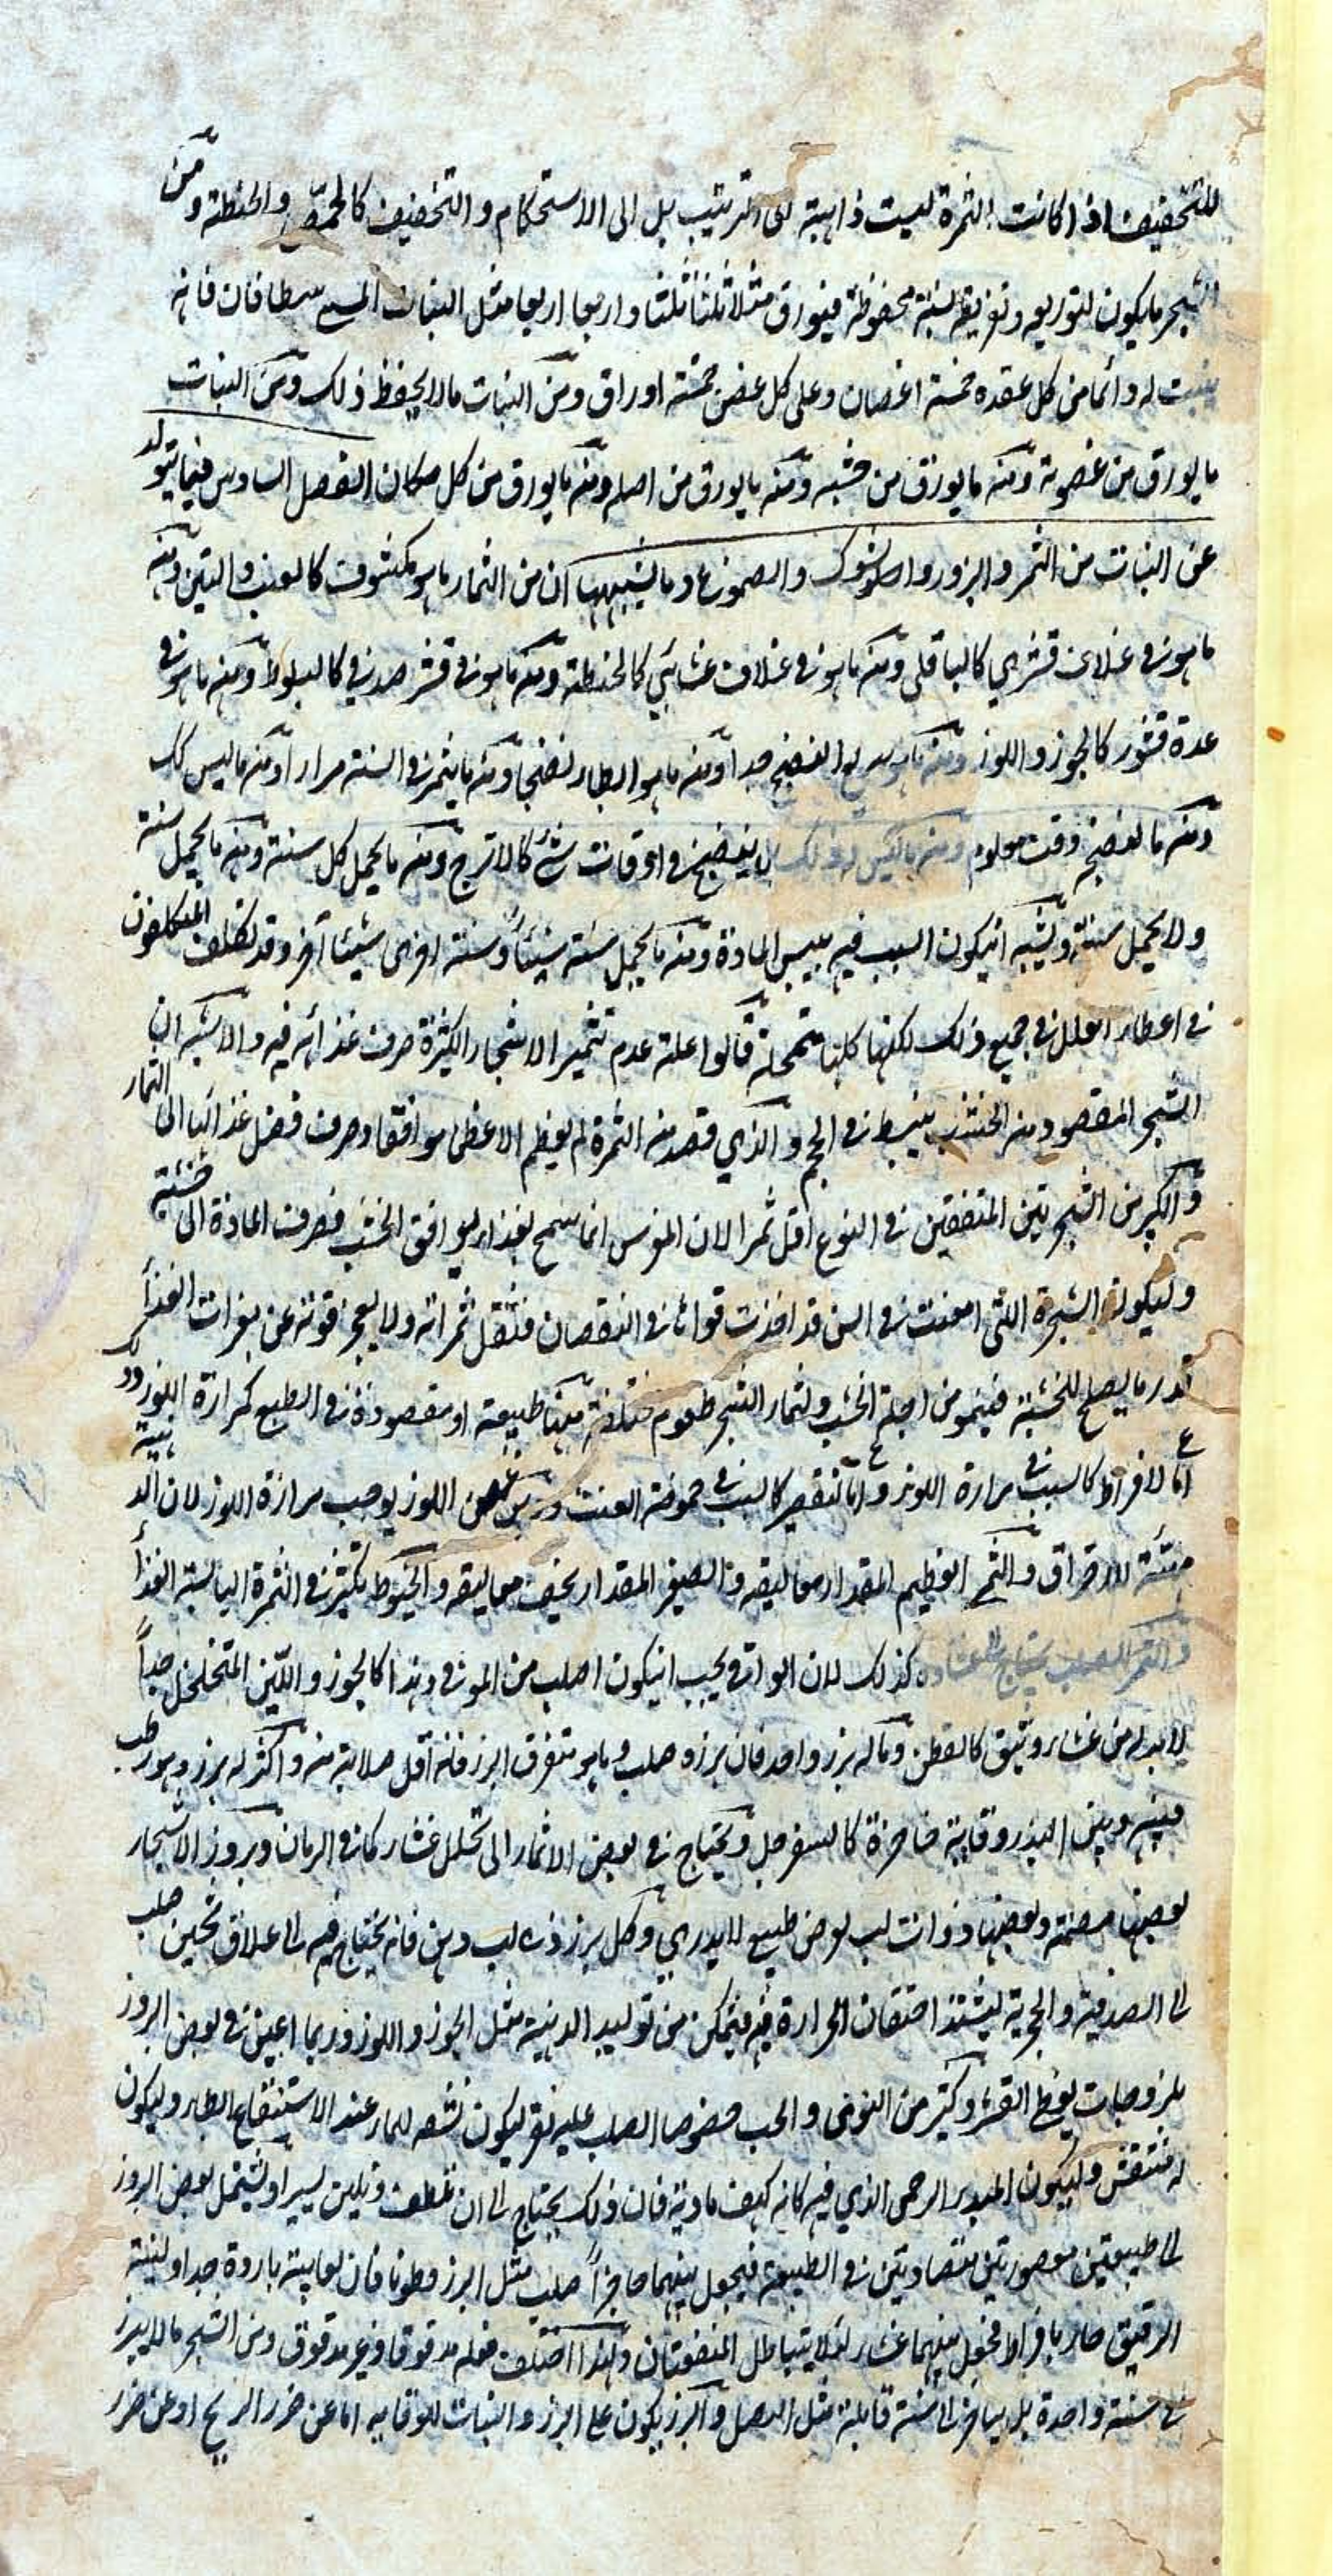 للتخفيف اذا كانت الثمرة ليست ذاهبة الى الترتيب بل الى الاستحكام والتخفيف كالحمص والحنطة ومن
الشجر ما يكون لتوريقه وتفريعه نسبة محفوظة فيورق مثلا ثلثا ثلثا واربعا اربعا مثل النبات المسمى سطافان فانه
ينبت له دائما من كل عقدة خمسة اغصان وعلى كل غصن خمسة اوراق ومن النبات ما لا يحفظ ذلك ومن النبات
ما يورق من غصونه ومنه ما يورق من خشبه ومنه ما يورق من اصله ومنه ما يورق من كل مكان الفصل السادس فيما يتولد
عن النبات من الثمر والبزور والشوك والصموغ وما يشبهها ان من الثمار ما هو مكشوف كالعنب والتين ومنه
ما هو في غلاف قشري كالباقلى ومنه ما هو في غلاف غشائي كالحنطة ومنه ما هو في قشر صدفي كالبلوط ومنه ما هو في
عدة قشور كالجوز واللوز ومنه ما هو سريع النضج جدا ومنه ما هو ابطا نضجا ومنه ما يثمر في السنة مرارا ومنه ما ليس كك
ومنه ما لنضجه وقت معلوم ومنه ما ليس له ذلك بل ينضج في اوقات شتى كالاترج ومنه ما يحمل كل سنة ومنه ما يحمل سنة
ولا يحمل سنة ويشبه ان يكون السبب فيه يبس المادة ومنه ما يحمل سنة شيئا وسنة اخرى شيئا آخر وقد تكلف المتكلفون
في اعطاء العلل في جميع ذلك لكنها كلها متمحلة قالوا علة عدم تثمير الاشجار الكثيرة صرف غذائه فيه والاشبه ان
الشجر المقصود منه الخشب ينبسط في الحجم والذي قصد منه الثمرة لم يعظم الاعظما موافقا وصرف فضل غذائها الى الثمار
والكبر من الشجرتين المتفقتين في النوع اقل ثمرا لان المغرس انما سمح بغذاء يوافق الخشب فصرف المادة الى خشبه
وليكون الشجرة التي امعنت في السن قد اخذت قواها في النقصان فتقل ثمراته ولا يعجز قوته عن
قدر ما يصلح للخشبة فينمو من اجله الخشب ولثمار الشجر طعوم مختلفة منها طبيعة او مقصودة في الطبع كمرارة اللوز
اما لافراط كالسبب في مرارة اللوز واما لتقصير كالسبب في حموضة العنب اللوز يوجب مرارة اللوز لان الدهنية
للاحتراق والثمر العظيم المقدار معاليقه والصغير المقدار يخيف معاليقه والخيوط تكثر في الثمرة اليابسة الغذاء
والثمر الصلب يحتاج الى غشاء كذلك لان الواقي يجب ان يكون اصلب من الموقى وهذا كالجوز واللين المتخلخل جدا
لا بد له من غشاء وثيق كالقطن وما له بزر واحد فان بزره صلب وما هو متفرق البزر فانه اقل صلابة منه واكثر له بزر وهو رطب
فبينه وبين البذر وقاية حاجزة كالسفرجل ويحتاج في بعض الاثمار الى تخلل غشاء كما في الرمان وبروز الاشجار
بعضها مصمتة وبعضها ذوات لب لغرض طبيعي لا يدري وكل بزر ذي لب دهن فانه يحتاج فيه الى غلاف ثخين صلب
الى الصدفية والحجرية ليشتد احتقان الحرارة فيه فيتمكن من توليد الدهنية مثل الجوز واللوز وربما اعين في بعض البزور
بلزوجات يغرى القشر وكثير من النوى والحب خصوصا الصلب عليه نقر ليكون نشفه للماء عند الاستنقاع ابطاء وليكون
له متنفس وليكون المبدء الرحمي الذي فيه كانه كهف مادية فان ذلك يحتاج الى ان تلطف وتلين يسيرا ويشتمل بعض البزور
الى طبيعتين مقصورتين متضادتين في الطبيعة فيجعل بينهما حاجزا صلب مثل البزر قطونا فان لعابيته باردة جدا ولبنيته
الرقيق حار بافراط فجعل بينهما غشاء لئلا يتباطل المنفعتان ولهذا اختلف فعله مدقوقا وغير مدقوق ومن الشجر ما لا يبزر
في سنة واحدة بل يتاخر الى سنة قابلة مثل البصل والبزر يكون على البزر والنبات للوقاية اما عن ضرر الريح او عن ضرر